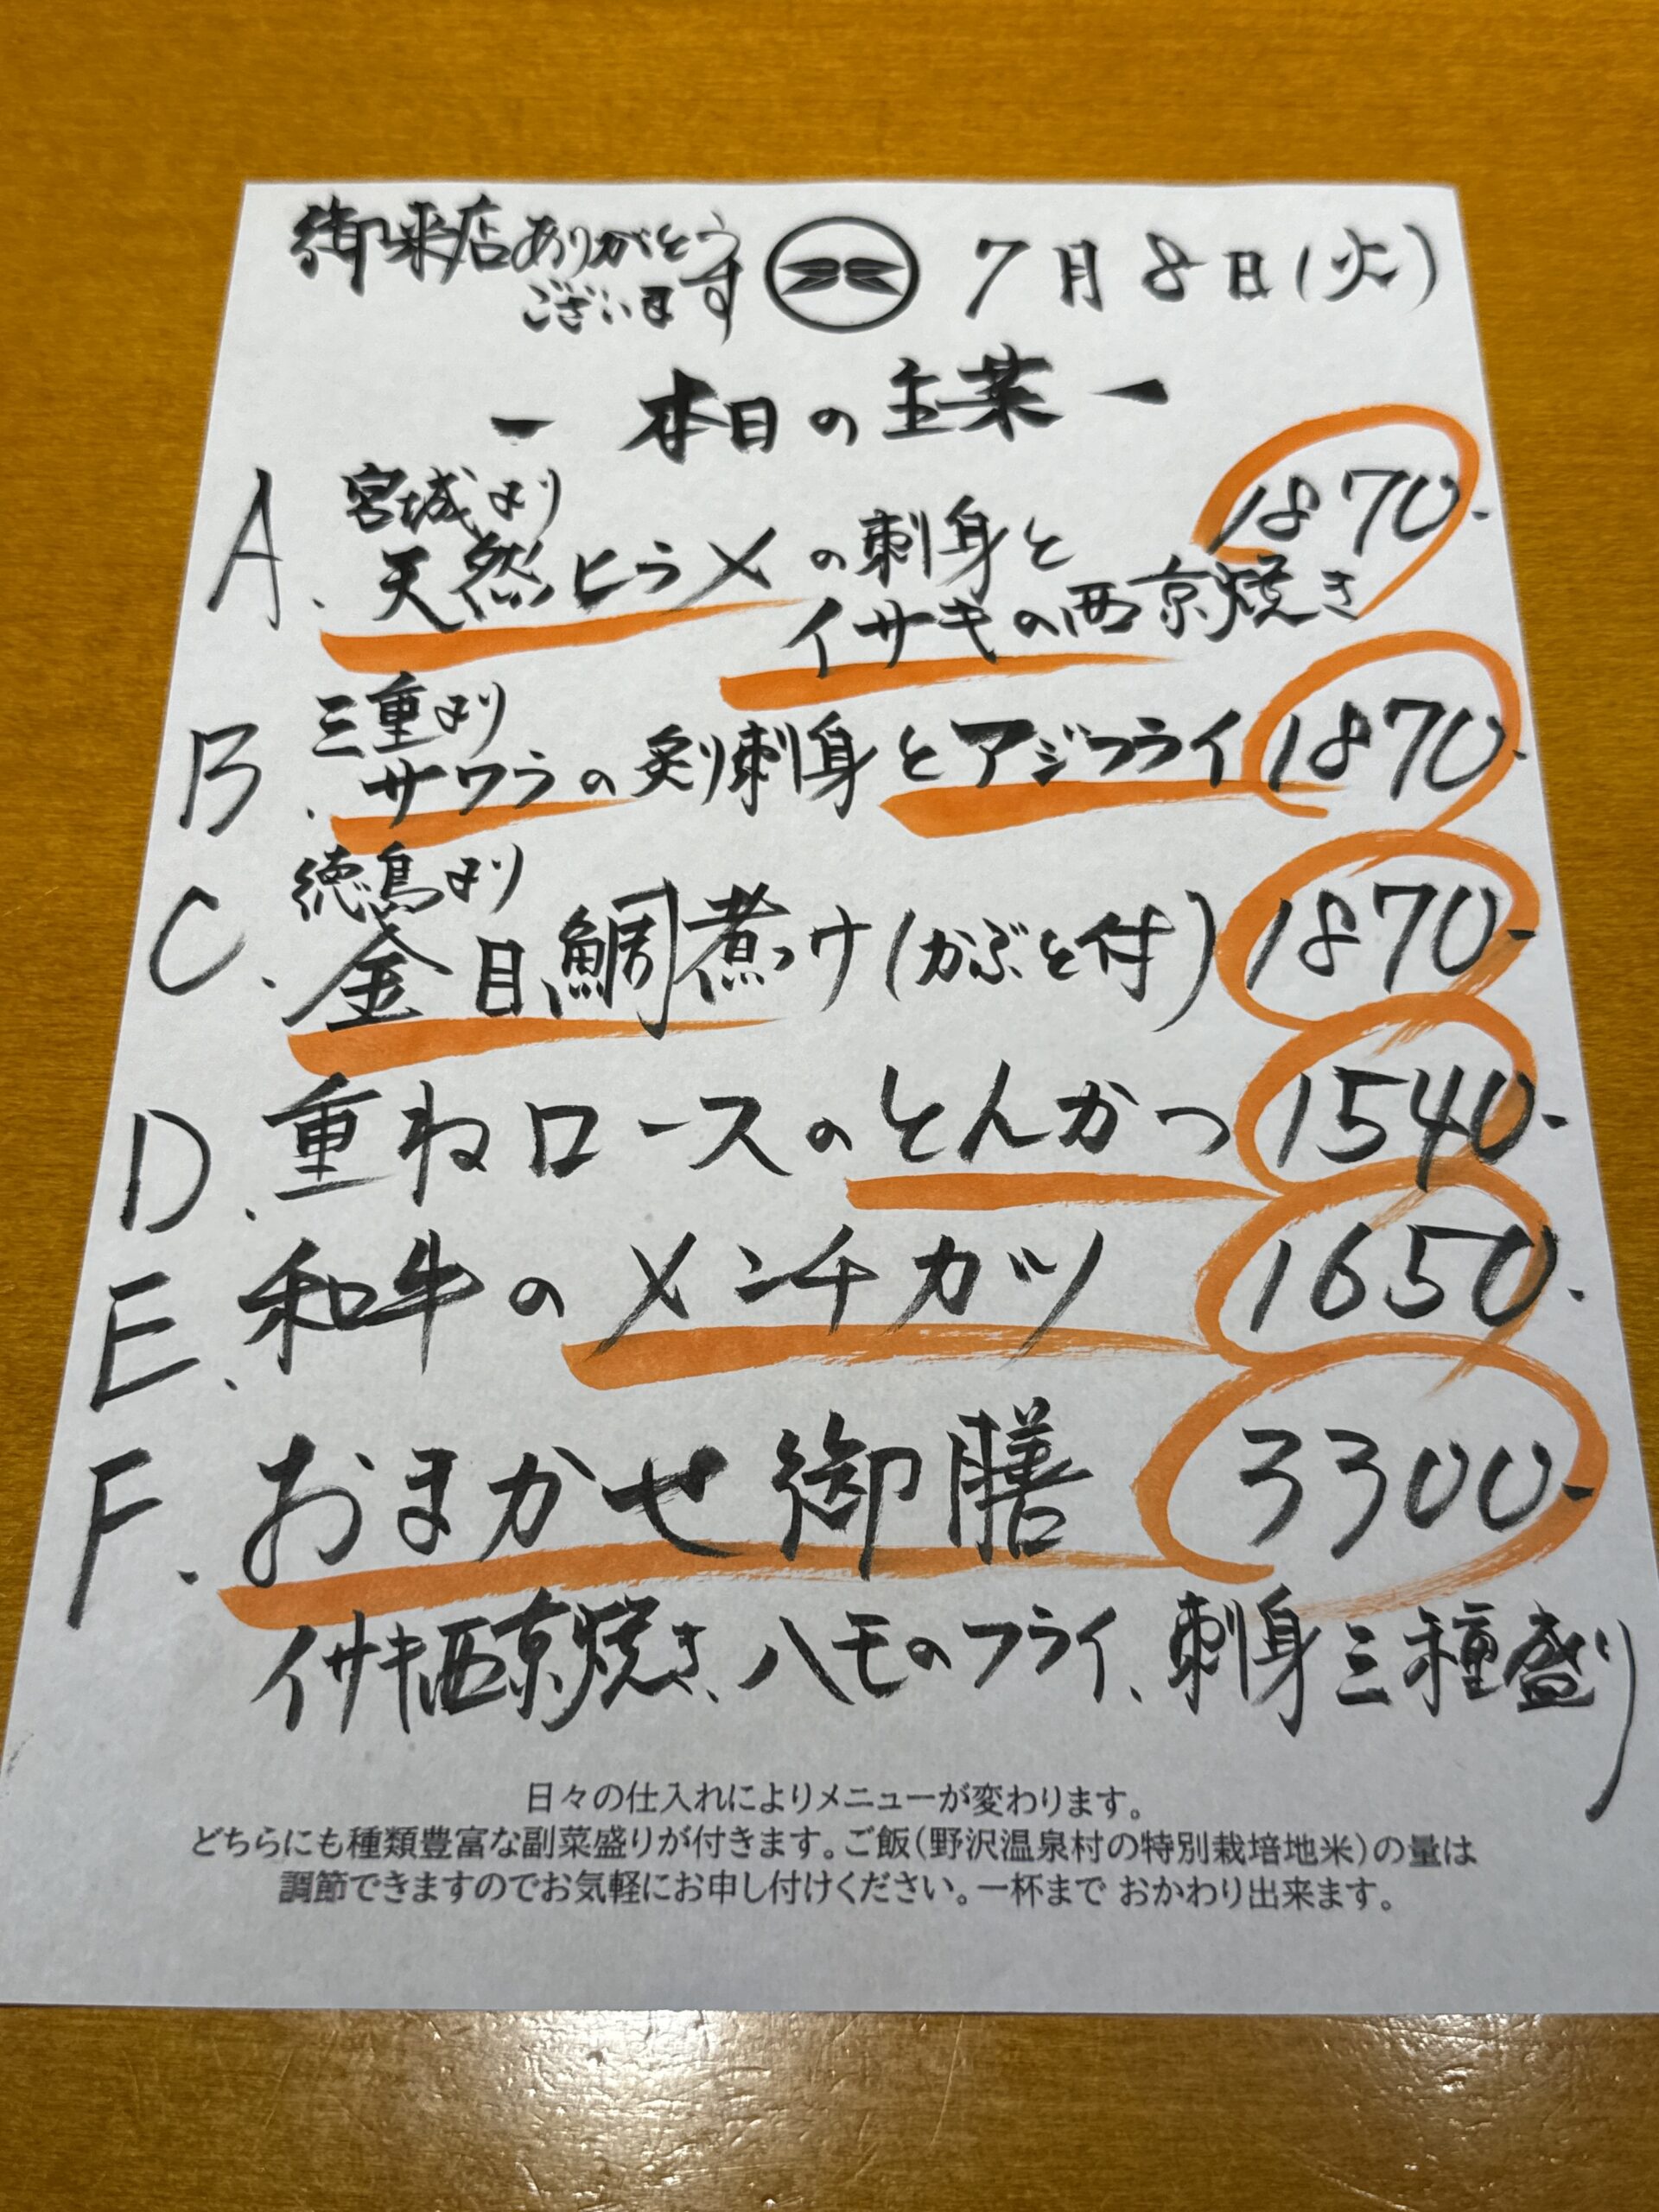 御来店ありがとう
ございます
7月8日(火)
ー 本日の主菜 ー
A. 宮城より
天然ヒラメの刺身と
イサキの西京焼き 1870.-
B. 三重より
サワラの炙り刺身とアジフライ 1870.-
C. 徳島より
金目鯛煮つけ(かぶと付) 1870.-
D. 重ねロースのとんかつ 1540.-
E. 和牛のメンチカツ 1650.-
F. おまかせ御膳 3300.-
イサキ西京焼き、ハモのフライ、刺身三種盛り
日々の仕入れによりメニューが変わります。
どちらにも種類豊富な副菜盛りが付きます。ご飯(野沢温泉村の特別栽培地米)の量は
調節できますのでお気軽にお申し付けください。一杯まで おかわり出来ます。